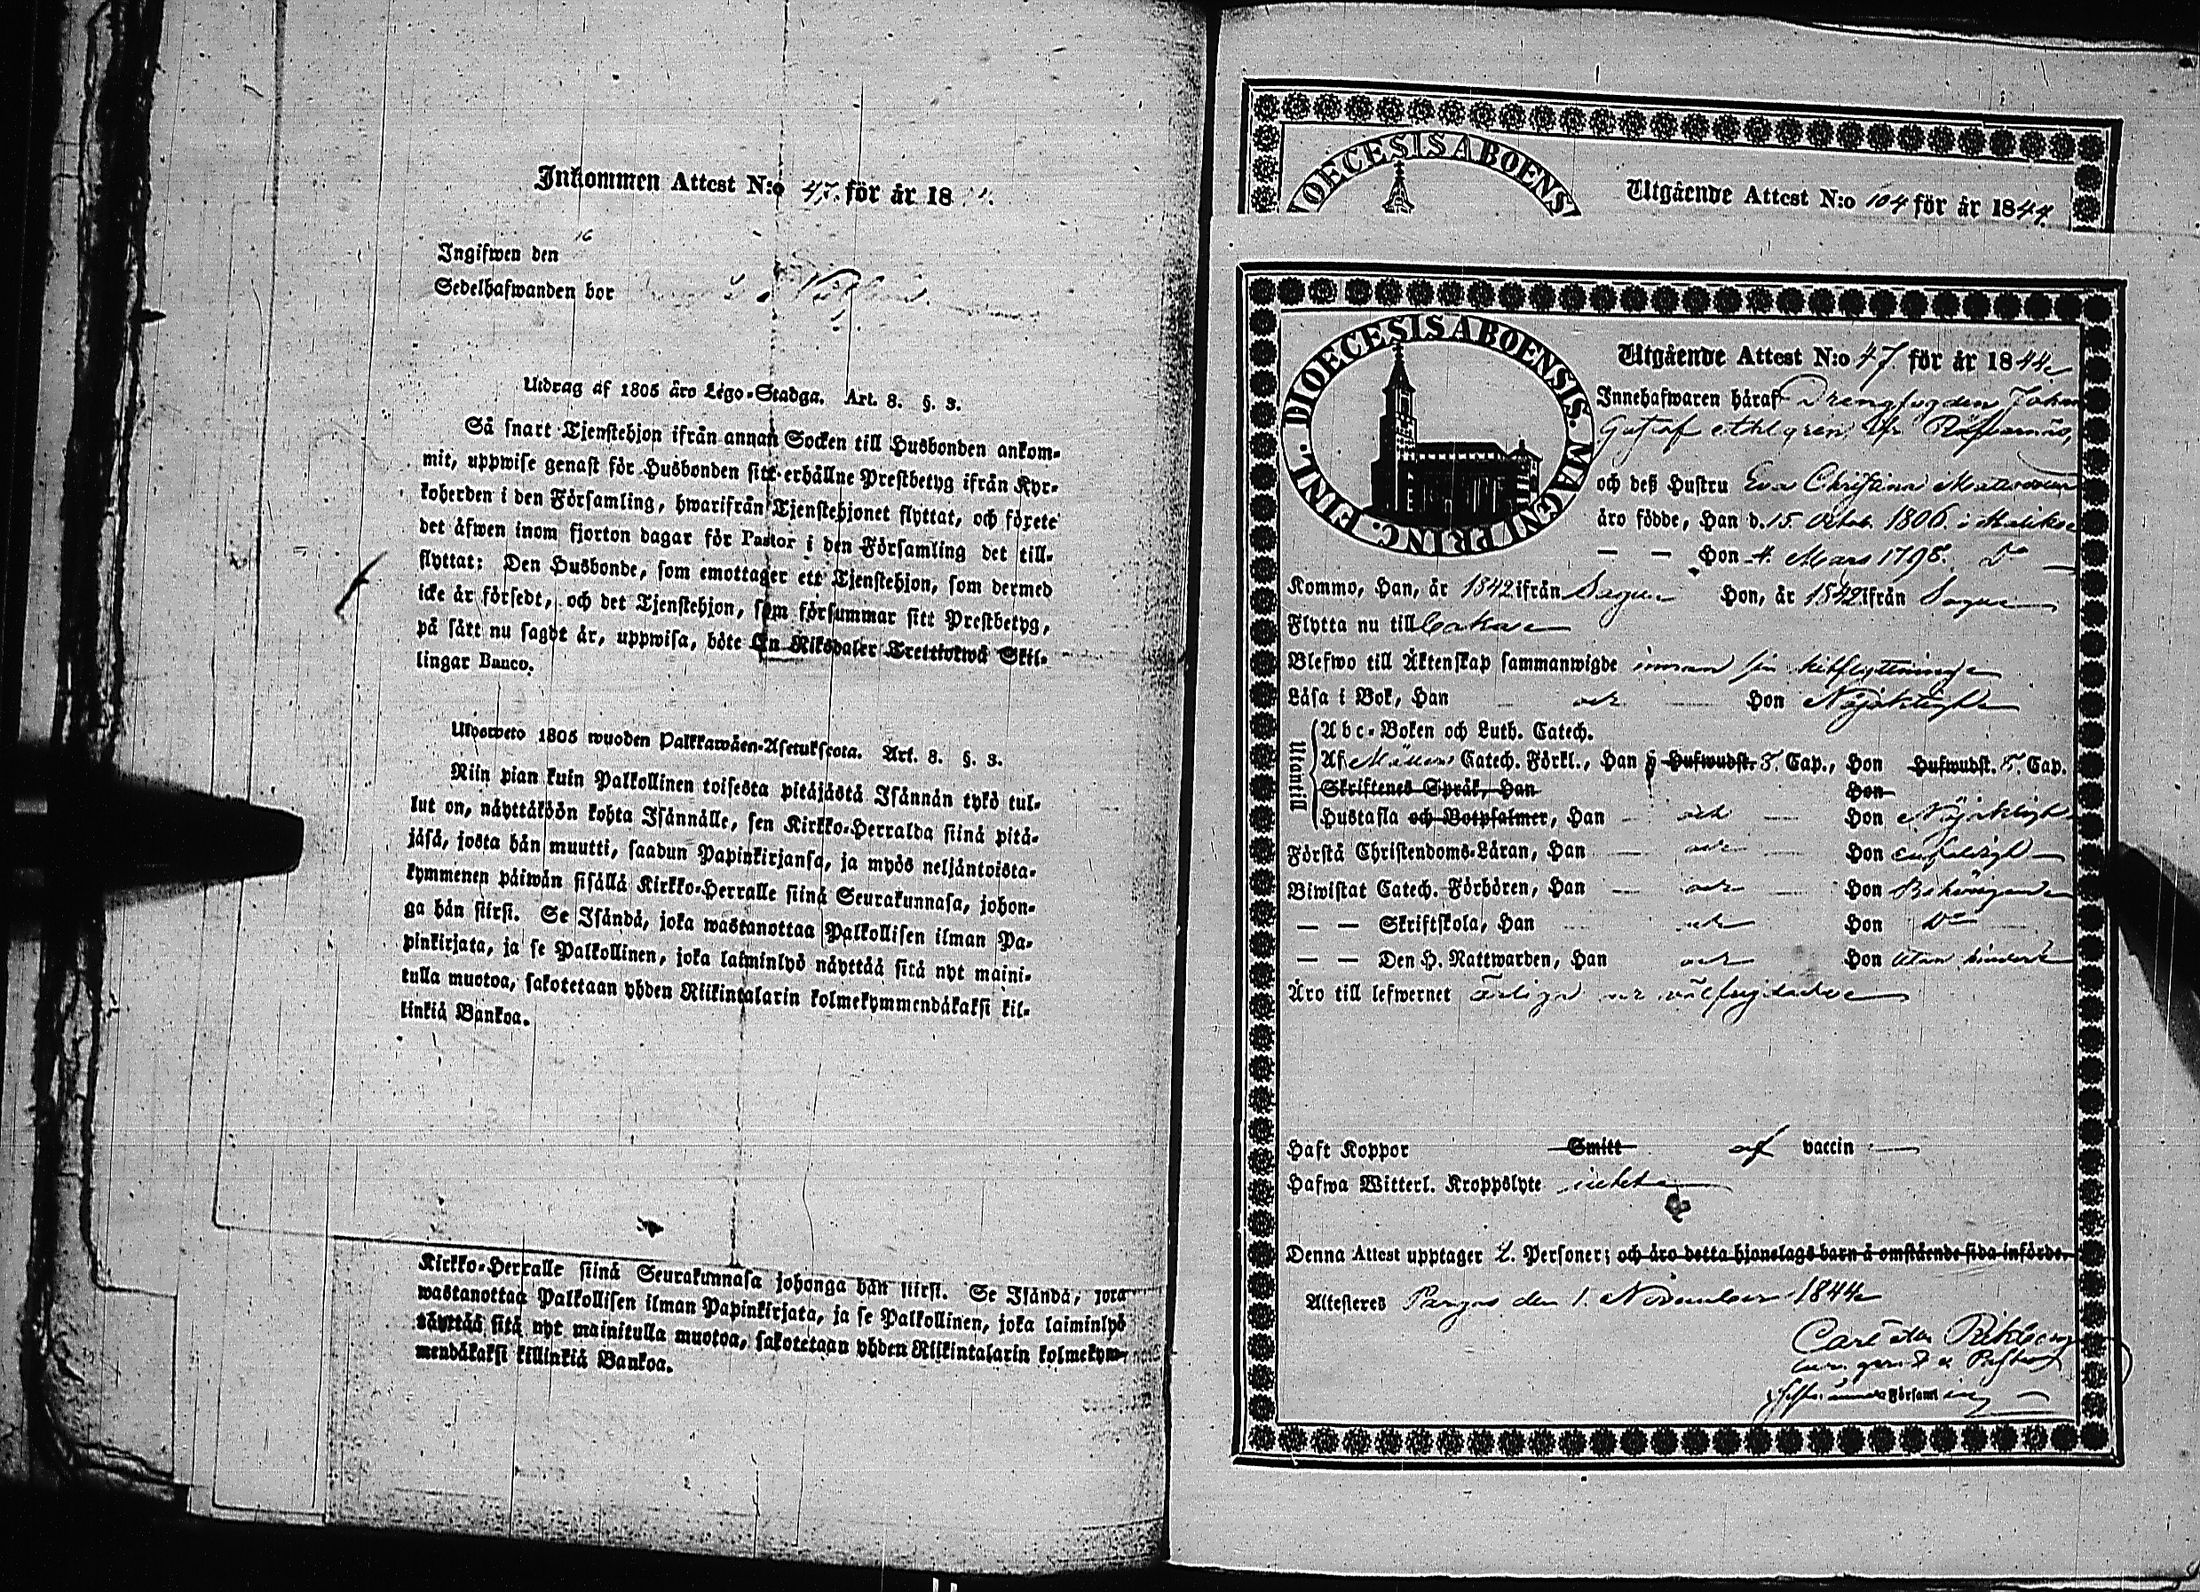 Inkommen Attest N:o 47. för år 18
Ingifwen den 16
Sedelhafwanden bor
Utdrag af 1805 års Lego-Stadga. Art. 8. §. 3.
Så snart Tjenstehjon ifrån annan Socken till Husbonden ankom-
mit, uppwise genast för Husbonden sitt erhållne Prestbetyg ifrån Kyr-
koherden i den Församling, hwarifrån Tjenstehjonet flyttat, och förete
det äfwen inom fjorton dagar för Pastor i den Församling det till-
flyttat: Den Husbonde, som emottager ett Tjenstehjon, som dermed
icke är försedt, och det Tjenstehjon, som försummar sitt Prestbetyg,
på sätt nu sagdt är, uppwisa, böte En Riksdaler Trettiotwå Skil-
lingar Banco.
Ulosweto 1805 wuoden Palkkawäen-Asetuksesta. Art. 8. §. 3.
Niin pian kuin Palkollinen toisesta pitäjästä Isännän tykö tul-
lut on, näyttäköön kohta Isännälle, sen Kirkko-Herralda siinä pitä-
jäsä, josta hän muutti, saadun Papinkirjansa, ja myös neljäntoista-
kymmenen päiwän sisällä Kirkko-Herralle siinä Seurakunnasa, johon-
ga hän siirsi. Se Isändä, joka wastanottaa Palkollisen ilman Pa-
pinkirjata, ja se Palkollinen, joka laiminlyö näyttää sitä nyt maini-
tulla muotoa, sakotetaan yhden Riikintalarin kolmekymmendäkaksi kil-
linkiä Bankoa.
Kirkko-Herralle siinä Seurakunnasa johonga hän siirsi. Se Isändä, joka
wastanottaa Palkollisen ilman Papinkirjata, ja se Palkollinen, joka laiminlyö
näyttää sitä nyt mainitulla muotoa, sakotetaan yhden Riikintalarin kolmekym-
mendäkaksi killinkiä Bankoa.
OECESIS ABOENS
Utgående Attest N:o 104 för år 1844.
DIOECESIS ABOENSIS. MAGNI PRINC. FINL.
Utgående Attest N:o 47. för år 1844
Innehafwaren häraf Drengfogden Johan
Gustaf Ahlgren
och deß Hustru Eva Christina
äro födde, Han d. 15. Octob. 1806. i
— — Hon 4. Mars 1798. Do
Kommo, Han, år 1842 ifrån Sagu Hon, år 1842 ifrån Sagu
Flytta nu till
Blefwo till Äktenskap sammanwigde innan sin hitflyttning
Läsa i Bok, Han — och — Hon Nöjaktigt
Utantill
Abc-Boken och Luth. Catech.
Af Catech. Förkl., Han Hufwudst. 5. Cap., Hon Hufwudst. 5. Cap.
Skriftenes Språk, Han Hon
Hustafla och Botpsalmer, Han — och — Hon Nöjaktigt
Förstå Christendoms-Läran, Han — och — Hon enfaldigt
Biwistat Catech. Förhören, Han — och — Hon Behörigen
— — Skriftskola, Han och Hon Do
— — Den H. Nattwarden, Han och Hon utan hinder
Äro till lefwernet ärliga och välfrejdade
Haft Koppor Smitt af vaccin
Hafwa Witterl. Kroppslyte icke
Denna Attest upptager 2. Personer; och äro detta hjonelags barn å omstående sida införde.
Attesteres Pargas den 1. November 1844
Carl
Församling